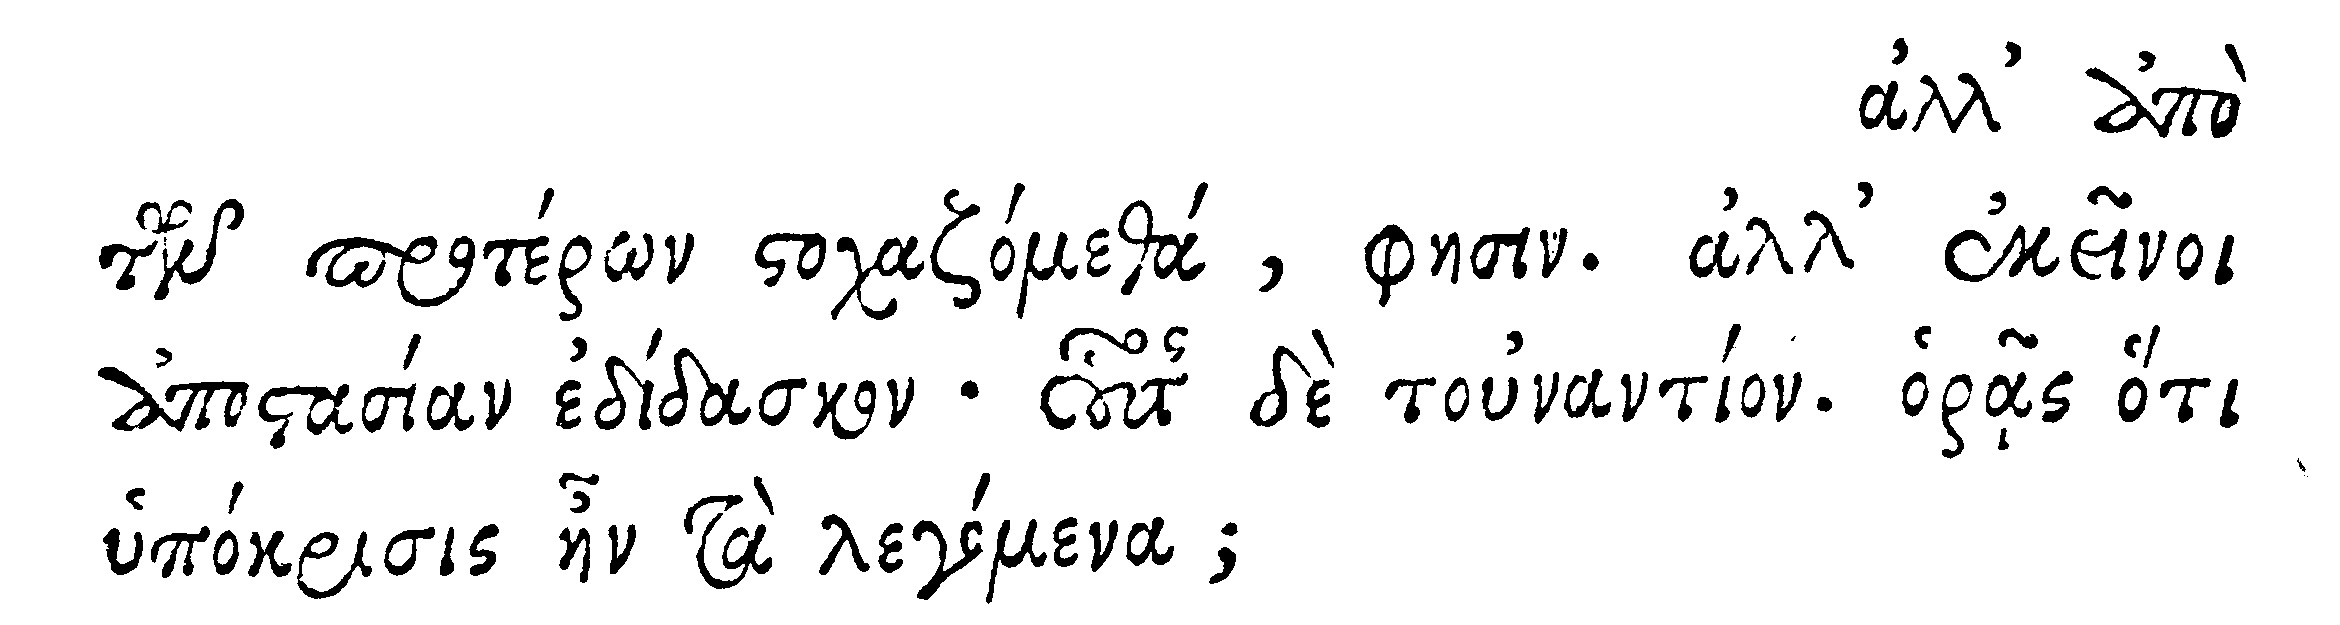 ἀλλ’ ἀπὸ
τῶν προτέρων στοχαζόμεθά, φησιν. ἀλλ’ ἐκεῖνοι
ἀποστασίαν ἐδίδασκον· οὗτος δὲ τοὐναντίον. ὁρᾷς ὅτι
ὑπόκρισις ἦν τὰ λεγόμενα;